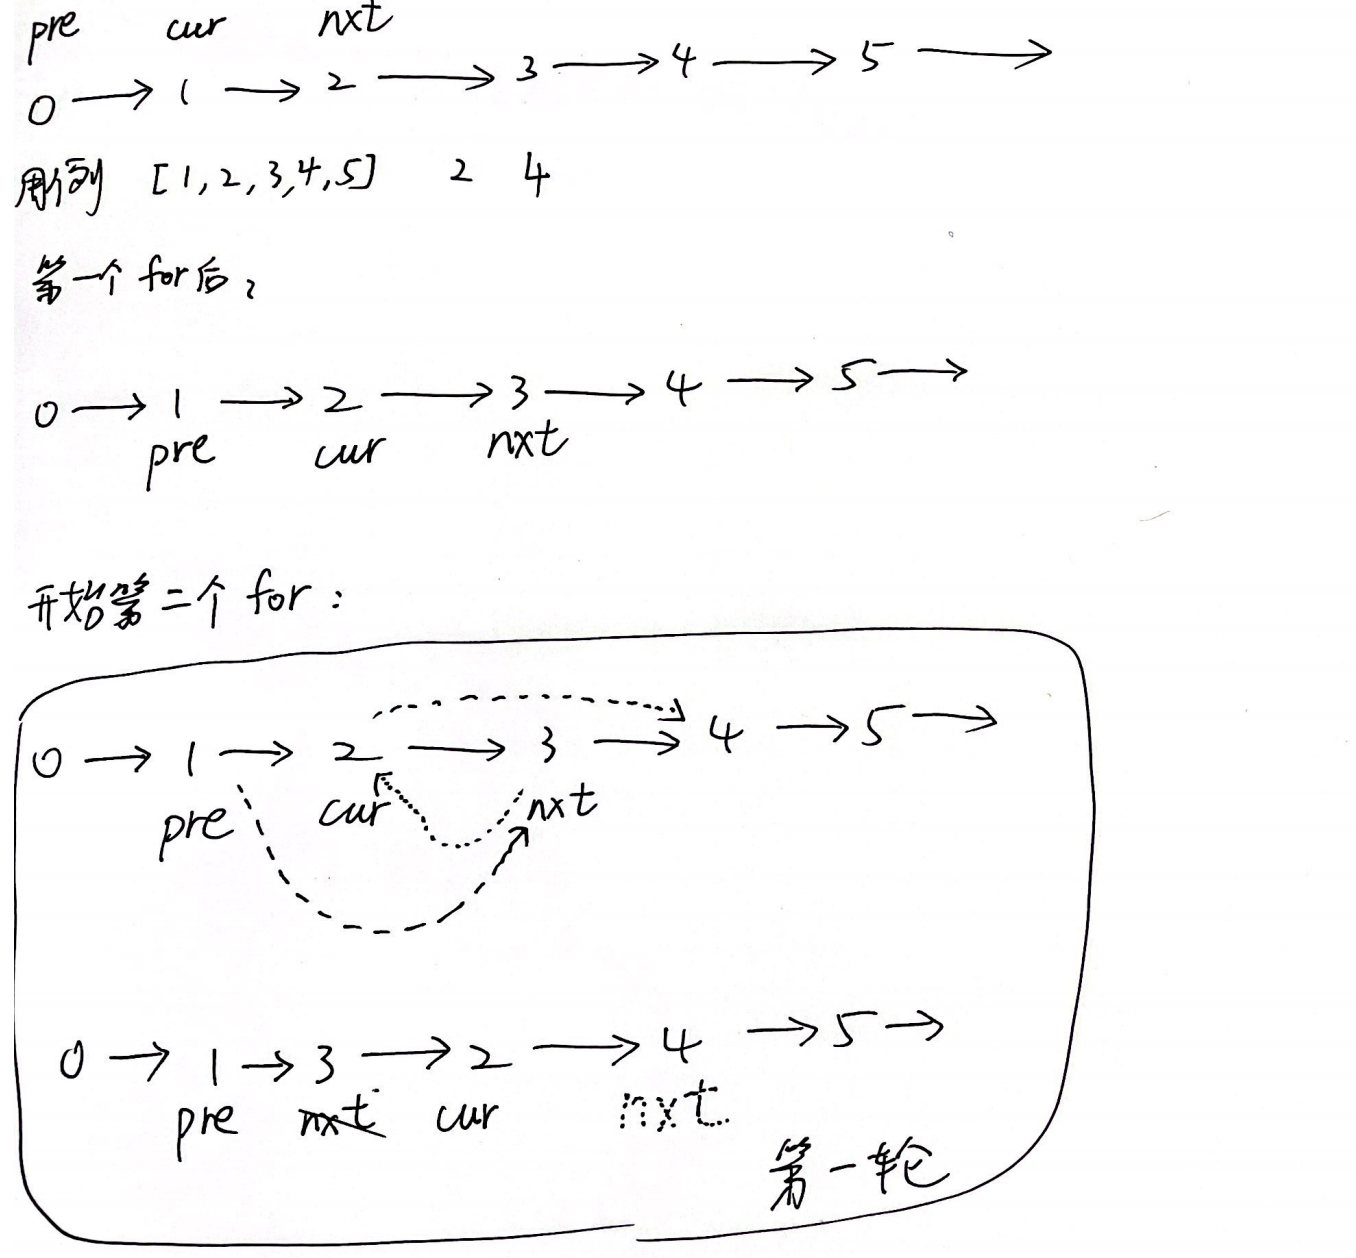 pre cur nxt
0 → 1 → 2 → 3 → 4 → 5 →
用例 [1,2,3,4,5] 2 4
第一个 for后:
0 → 1 → 2 → 3 → 4 → 5 →
pre cur nxt
开始第二个 for:
0 → 1 → 2 → 3 → 4 → 5 →
pre cur nxt
0 → 1 → 3 → 2 → 4 → 5 →
pre nxt cur nxt
第一轮